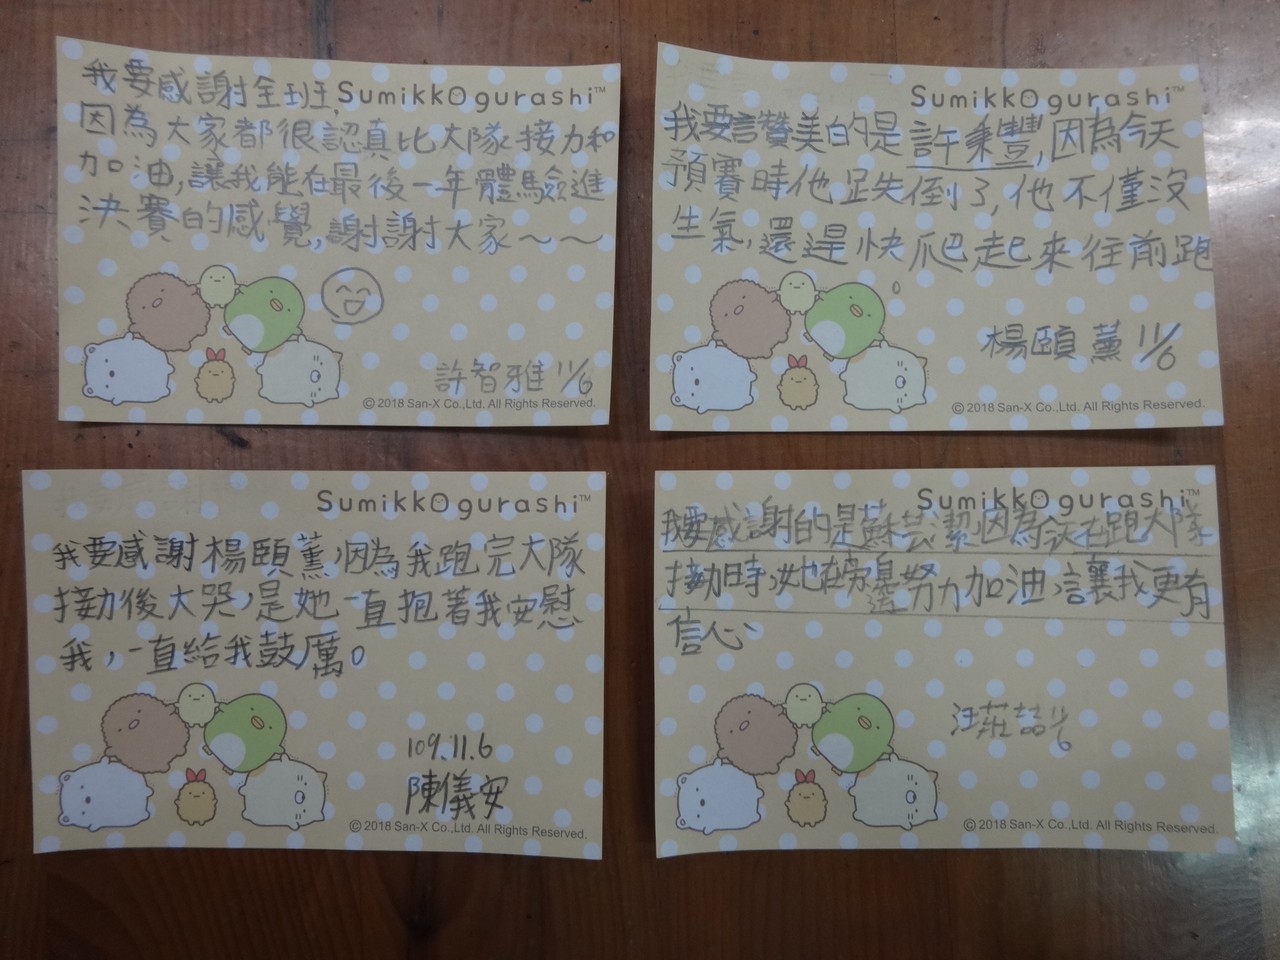 Sumikkogurashi™
我要感謝全班,
因為大家都很認真比大隊接力和
加油,讓我能在最後一年體驗進
決賽的感覺,謝謝大家~~
許智雅 11/6
© 2018 San-X Co.,Ltd. All Rights Reserved.
Sumikkogurashi™
我要讚美的是許秉豐,因為今天
預賽時他跌倒了,他不僅沒
生氣,還是快爬起來往前跑
。
楊頤薰 11/6
© 2018 San-X Co.,Ltd. All Rights Reserved.
Sumikkogurashi™
我要感謝楊頤薰,因為我跑完大隊
接力後大哭,是她一直抱著我安慰
我,一直給我鼓厲。
109.11.6
陳儀安
© 2018 San-X Co.,Ltd. All Rights Reserved.
Sumikkogurashi™
我要感謝的是蘇芸潔,因為今天在跑大隊
接力時,她在旁邊努力加油,讓我更有
信心、
汪莊喆 11/6
© 2018 San-X Co.,Ltd. All Rights Reserved.